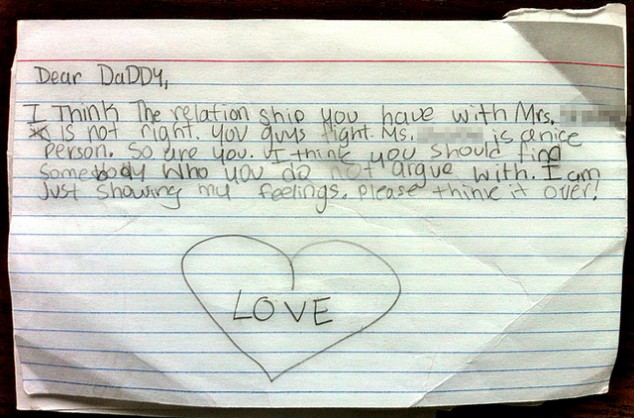 Dear DaDDy,
I Think The relation ship you have with Mrs.
is not right. you guys fight. Ms. is a nice
person. So are you. I think you should find
somebody who you do not argue with. I am
Just showing my feelings. please think it over!
LOVE